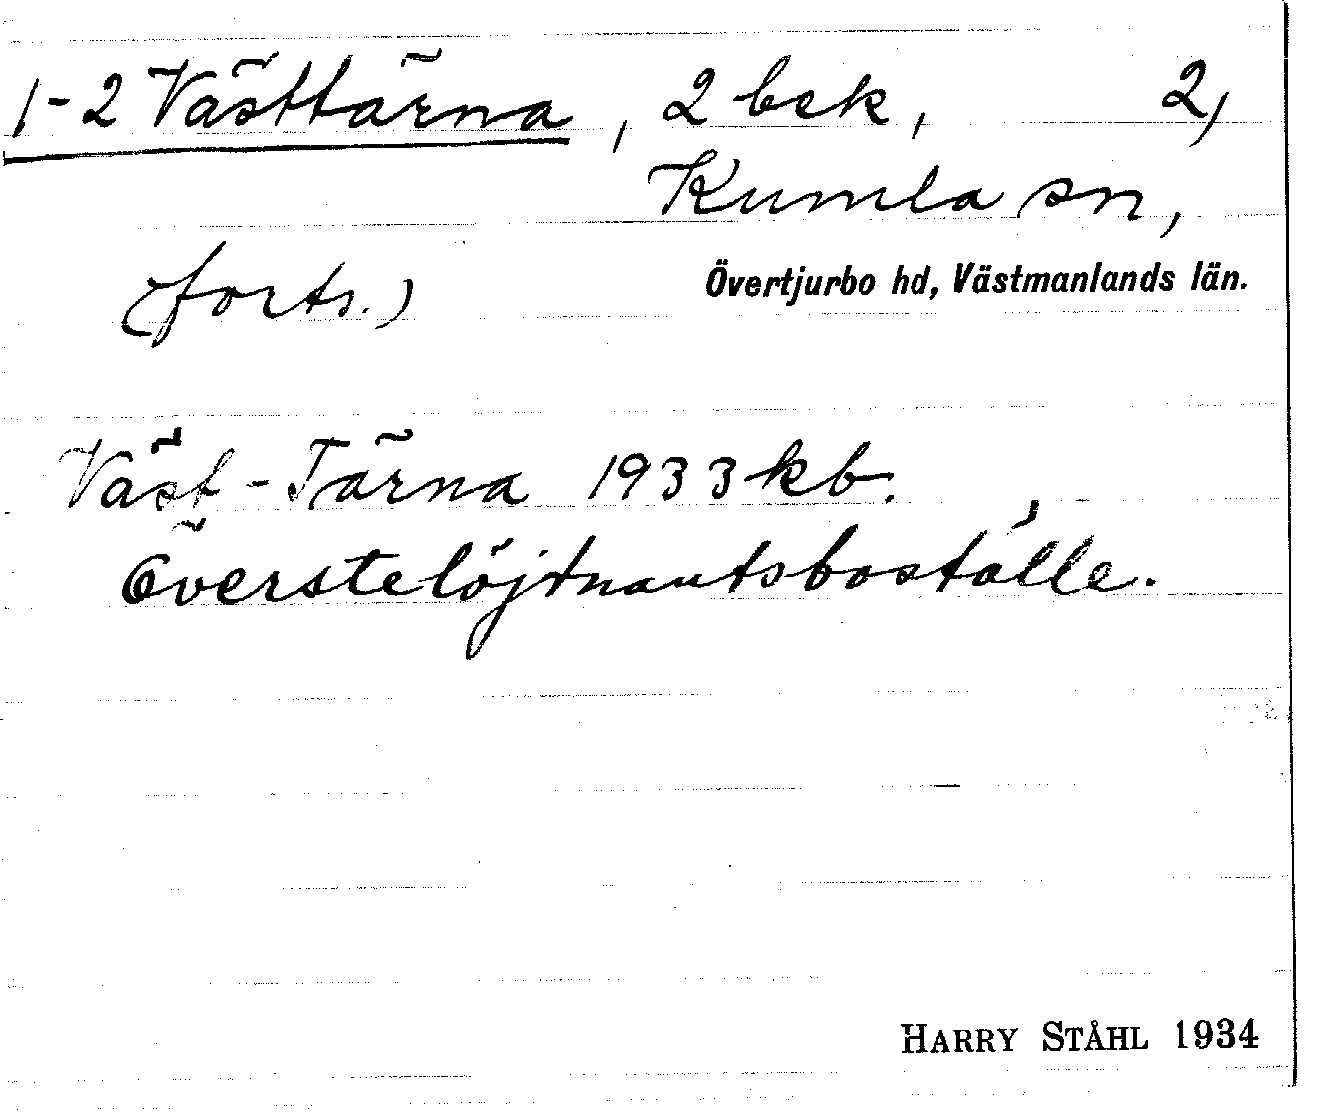 1-2 Västtärna, 2 bek, 2,
Kumla sn,
(forts.) Övertjurbo hd, Västmanlands län.
Väst-Tärna 1933 kb.
Överstelöjtnantsboställe.
HARRY STÅHL 1934